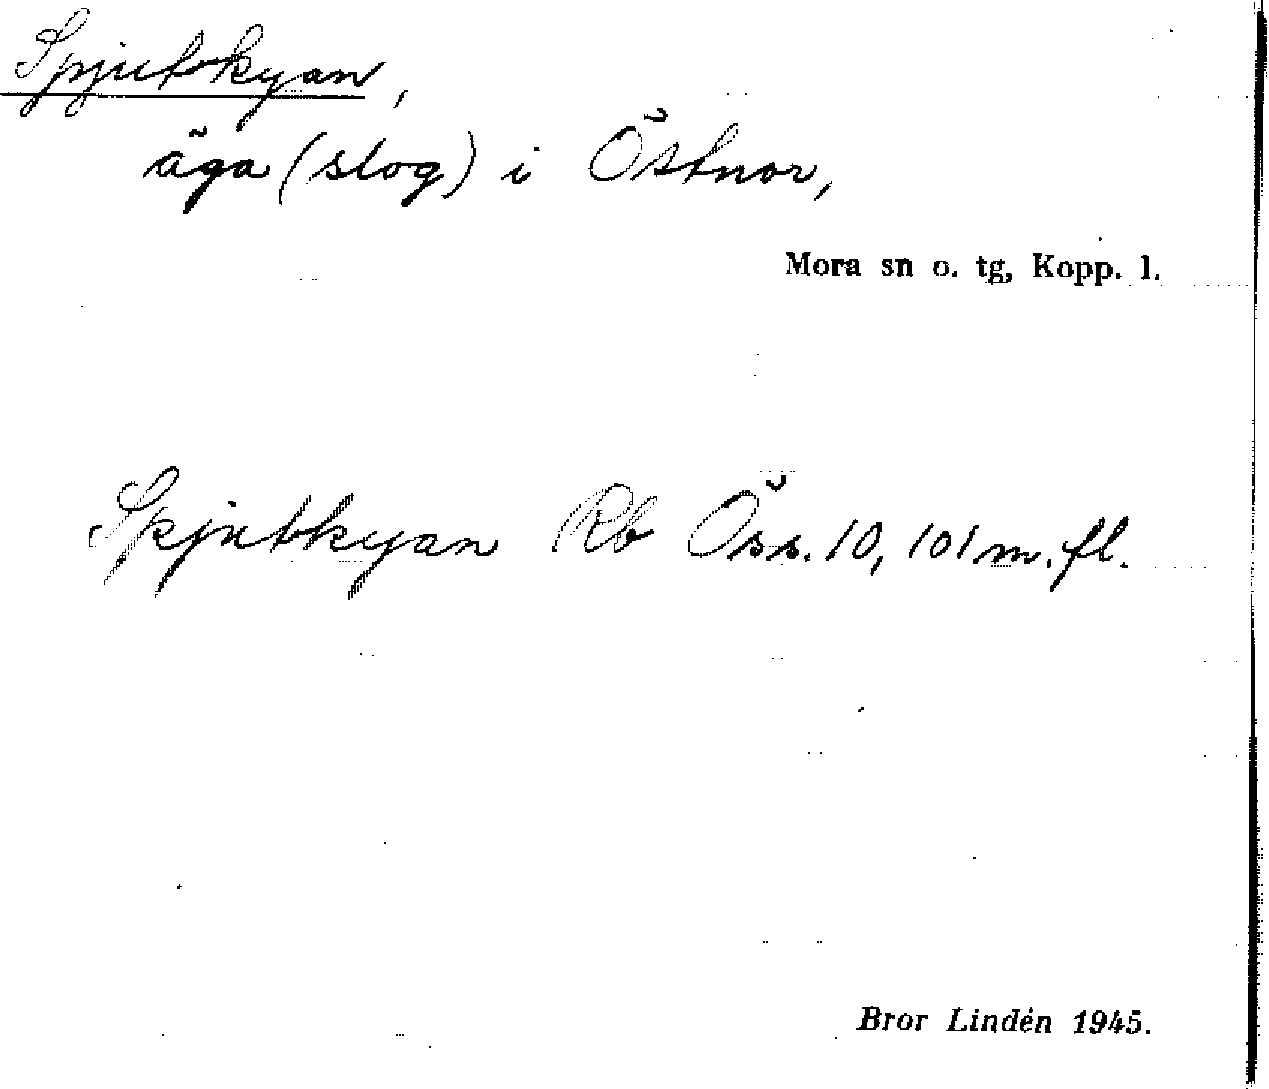 Spjutkyan,
äga (slog) i Östnor,
Mora sn o. tg, Kopp. l.
Spjutkyan Rb Öss. 10, 101 m. fl.
Bror Lindén 1945.